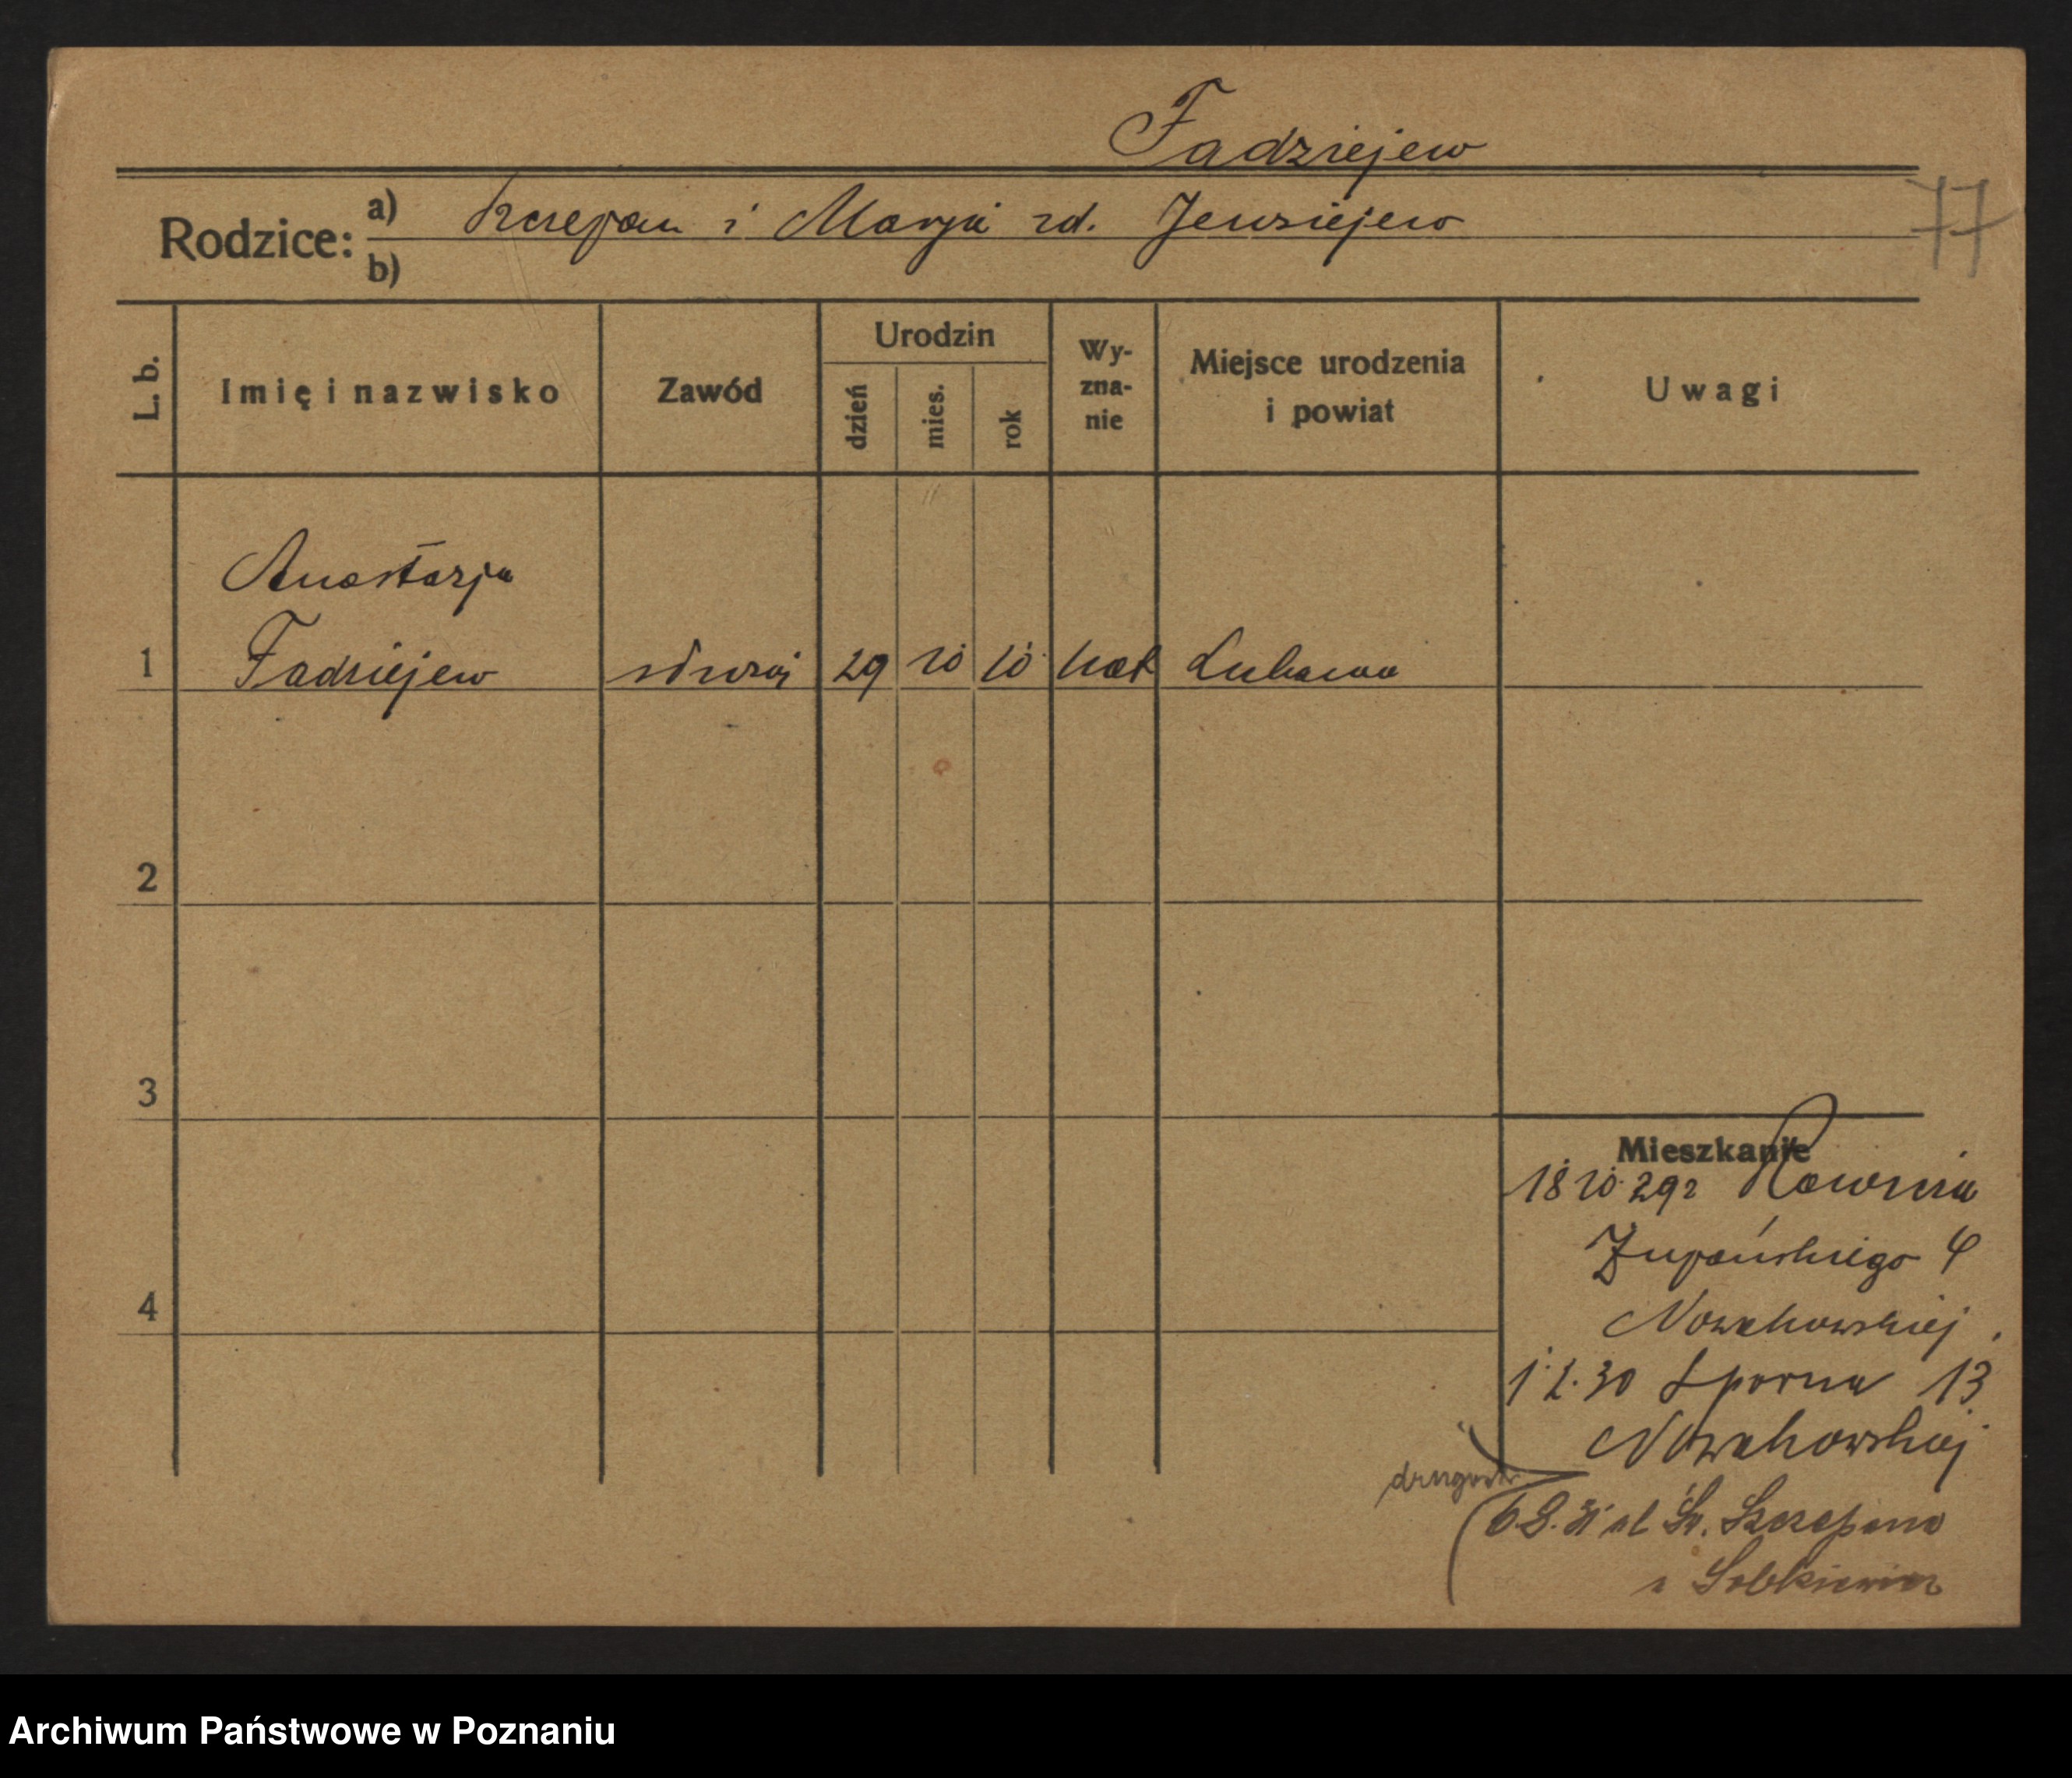 Fadziejew
77
Rodzice: a) Szczepan i Marja zd. Jewsiejew
b)
L. b. Imię i nazwisko Zawód Urodzin dzień mies. rok Wy-zna-nie Miejsce urodzenia i powiat Uwagi
Anastazja
1 Fadziejew służąc 29 10 10 kat Lubawa
2
3
4
Mieszkanie
18 10 29 r Rawicza
Żupańskiego 4
Nowakowskiej
1.2.30 Sporna 13
Nowakowskiej
6.8.31 ul Św. Szczepana
u Sobkiewicz
Archiwum Państwowe w Poznaniu